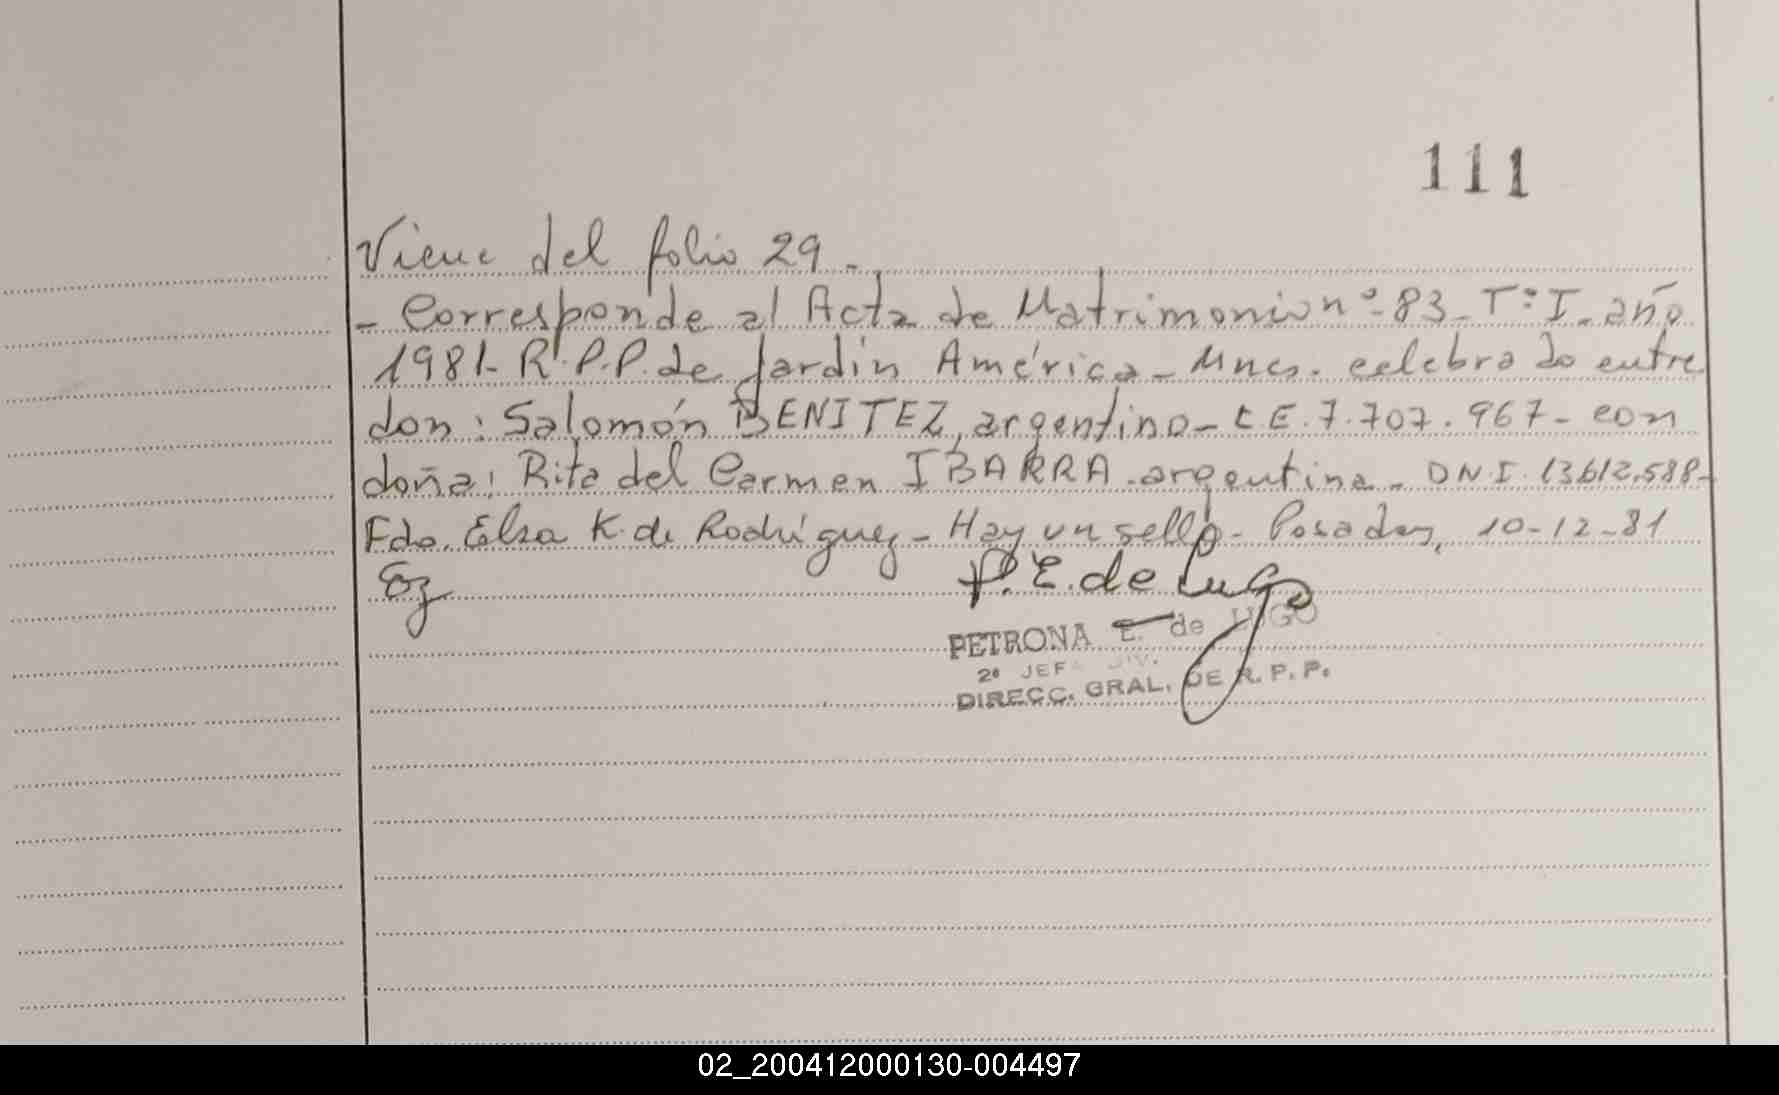 111
Viene del folio 29.-
- Corresponde al Acta de Matrimonio nº 83 - Tº I - año
1981- R.P.P. de Jardín América - Mnes. celebrado entre
don: Salomón BENITEZ, argentino - L E. 7.707.967 - con
doña: Rita del Carmen IBARRA - argentina - DN.I. 13.612.588-
Fdo. Elsa K. de Rodríguez - Hay un sello - Posadas, 10-12-81
P. E. de Lugo
PETRONA E. de LUGO
2º JEFA DIV.
DIRECC. GRAL. DE R. P. P.
02_200412000130-004497